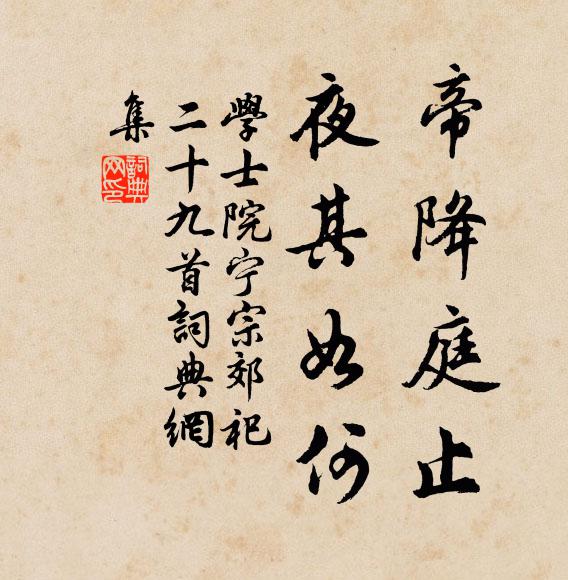 帝降庭止
夜其如何
學士院宁宗郊祀
二十九首詞典網
集
詞典網印